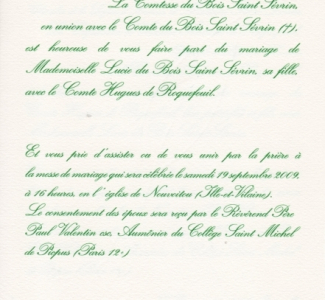 La Comtesse du Bois Saint Sévrin,
en union avec le Comte du Bois Saint Sévrin (†),
est heureuse de vous faire part du mariage de
Mademoiselle Lucie du Bois Saint Sévrin, sa fille,
avec le Comte Hugues de Roquefeuil.
Et vous prie d'assister ou de vous unir par la prière à
la messe de mariage qui sera célébrée le samedi 19 septembre 2009,
à 16 heures, en l'église de Nouvoitou (Ille-et-Vilaine).
Le consentement des époux sera reçu par le Révérend Père
Paul Valentin csc, Aumônier du Collège Saint Michel
de Picpus (Paris 12e)